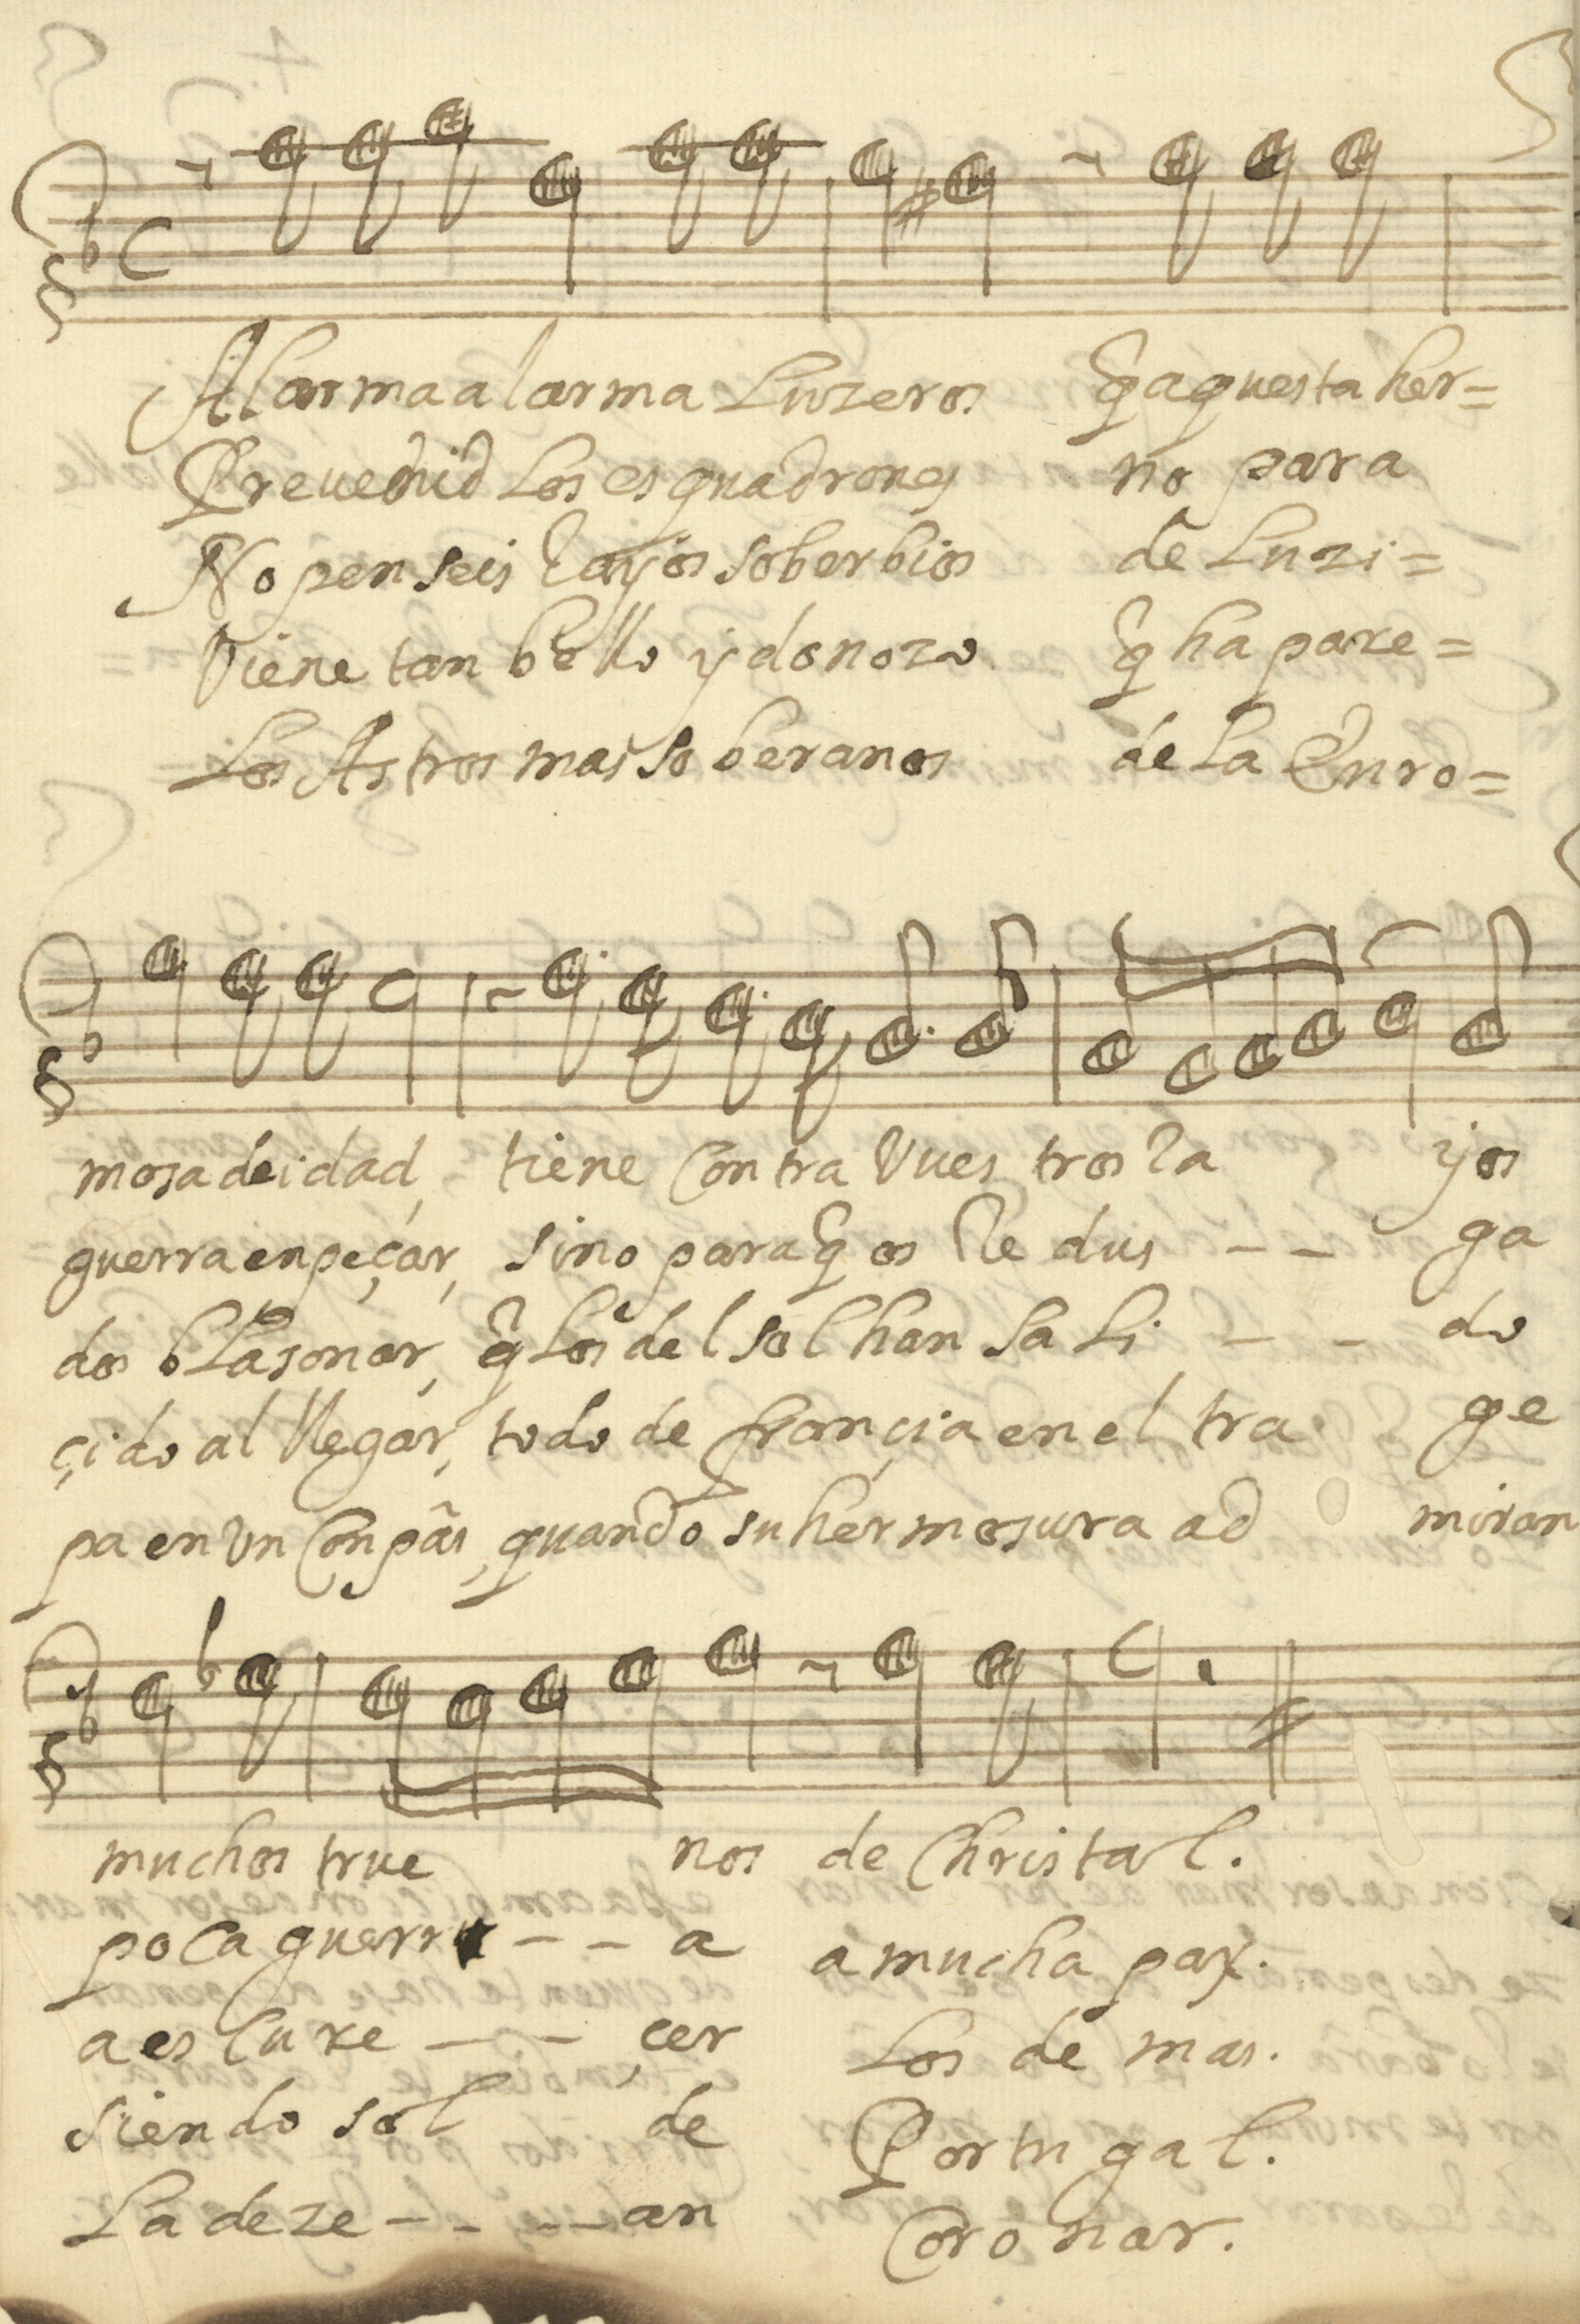 Alarma alarma Luzeros q̃ aquesta her=
Preuenid Los esquadrones no para
No penseis Rayos soberbios de Luzi=
Viene tan bello y donozo q̃ ha pare=
Los Astros mas soberanos de La Euro=
mosa deidad, tiene Contra Vuestros Ra yos
guerra enpeçar, sino para q̃ os Redus - - ga
dos bLasonar, q̃ Los del sol han saLi - - do
çido al llegar, todo de françia en el tra ge
pa en Vn Conpãs, quando su hermosura ad miran
muchos true nos de Christal.
poca guerr - - a a mucha pax.
a escure - - çer Los de mas.
siendo sol de Portugal.
La deze - - - - an Coronar.